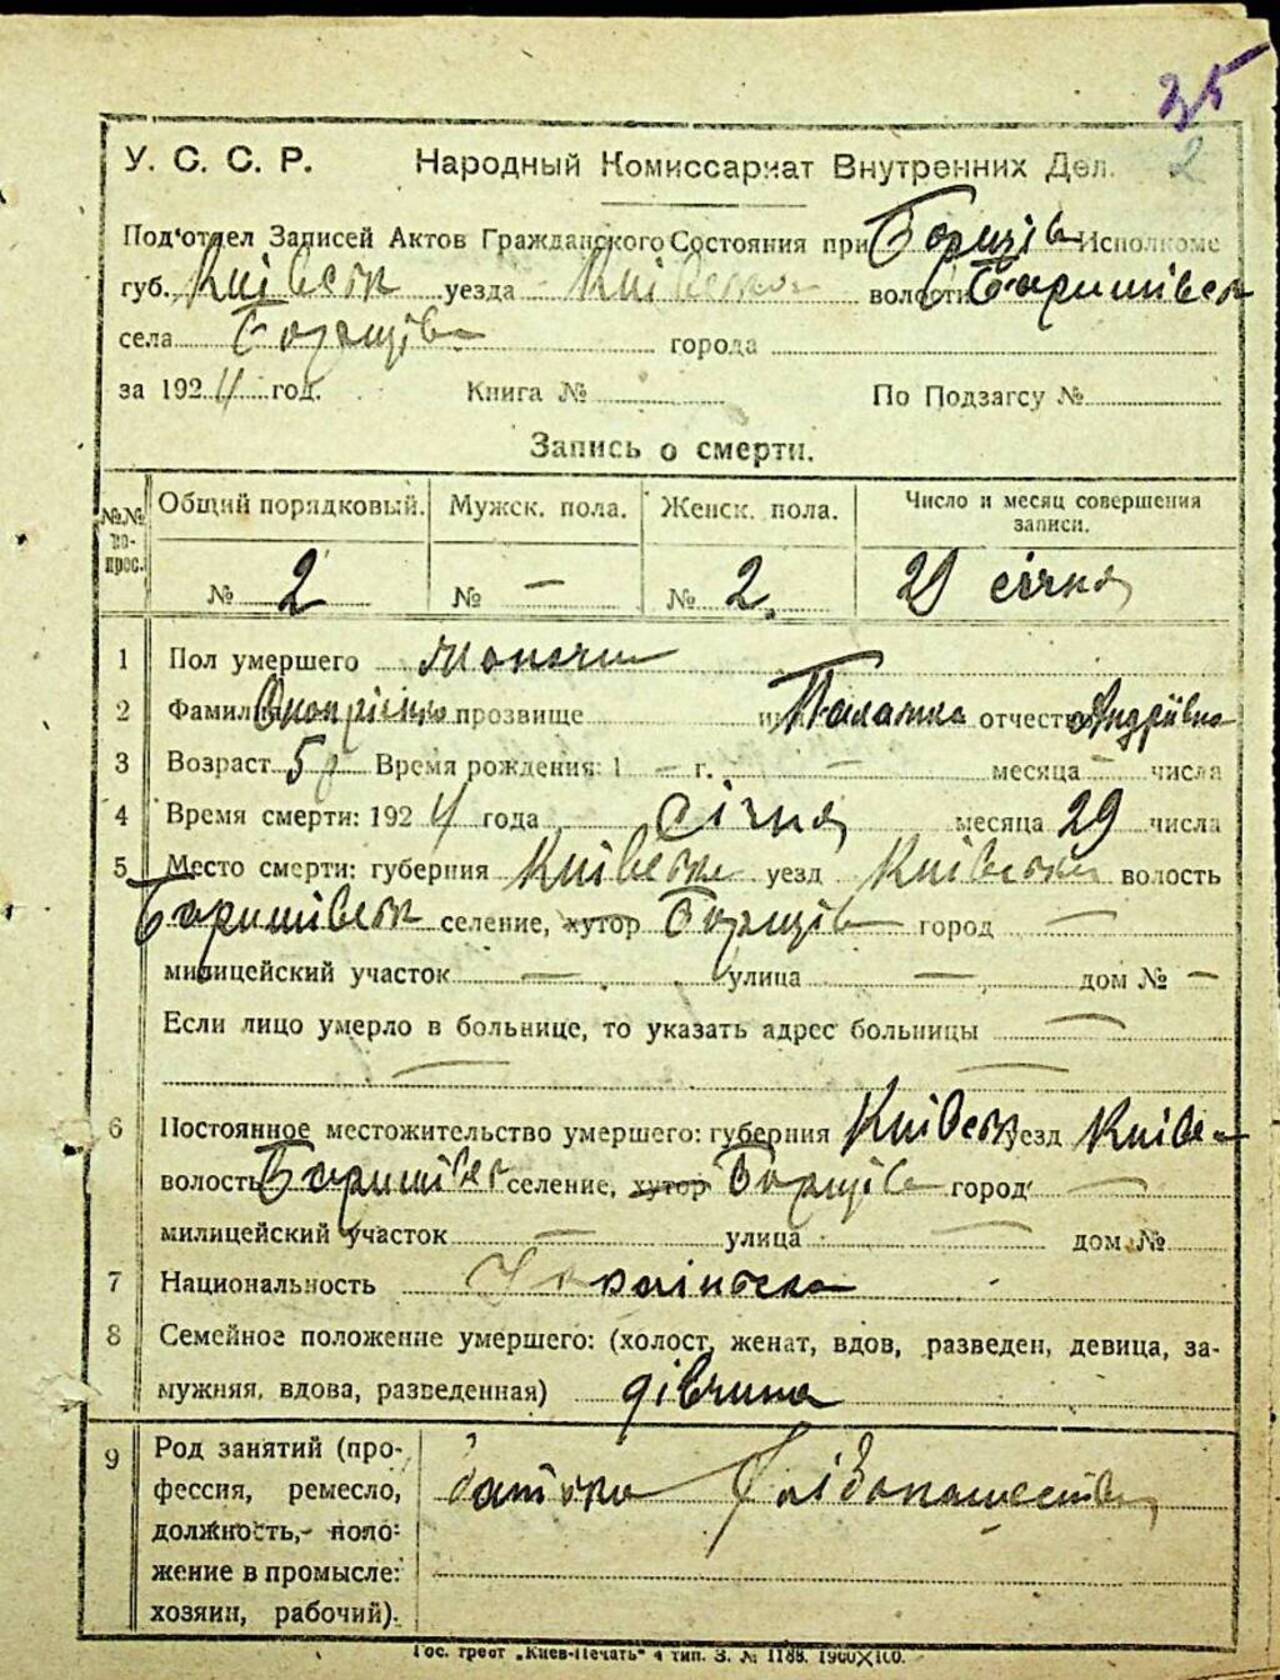 35
2
У. С. С. Р. Народный Комиссариат Внутренних Дел.
Под'отдел Записей Актов Гражданского Состояния при Борщів Исполкоме
губ. Київськ уезда Київської волости Баришівськ
села Борщів города
за 1924 год. Книга № По Подзагсу №
Запись о смерти.
№№ во-прос. Общий порядковый. Мужск. пола. Женск. пола. Число и месяц совершения записи.
№ 2 № — № 2. 29 січня
1 Пол умершего жіночи
2 Фамилия Онопрієнко прозвище имя Палажка отчество Андріївна
3 Возраст 5 р Время рождения: 1 — г. — месяца — числа
4 Время смерти: 1924 года січня месяца 29 числа
5 Место смерти: губерния Київська уезд Київський волость
Баришівськ селение, хутор Борщів город —
милицейский участок — улица — дом № —
Если лицо умерло в больнице, то указать адрес больницы —
— —
6 Постоянное местожительство умершего: губерния Київськ уезд Київс
волость Баришівс селение, хутор Борщів город —
милицейский участок — улица — дом №
7 Национальность Українська
8 Семейное положение умершего: (холост, женат, вдов, разведен, девица, за-
мужняя, вдова, разведенная) дівчина
9 Род занятий (про-
фессия, ремесло,
должность, поло-
жение в промысле:
хозяин, рабочий).
батько
Гос. трест „Киев-Печать“ 4 тип. З. № 1188. 1900×100.